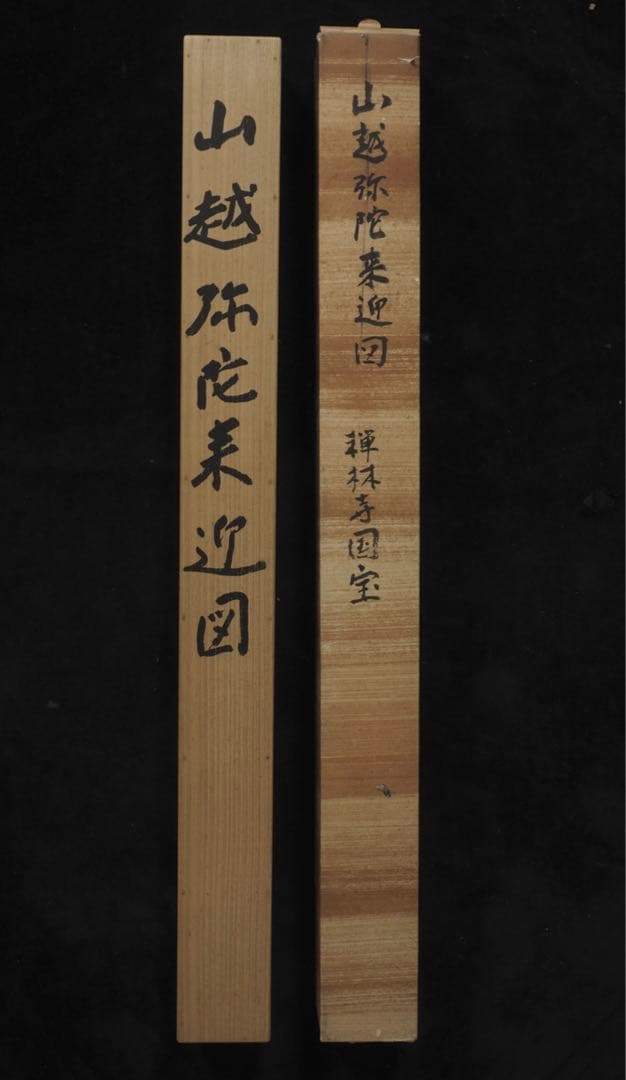 山越弥陀来迎図
山越弥陀来迎図 禅林寺国宝